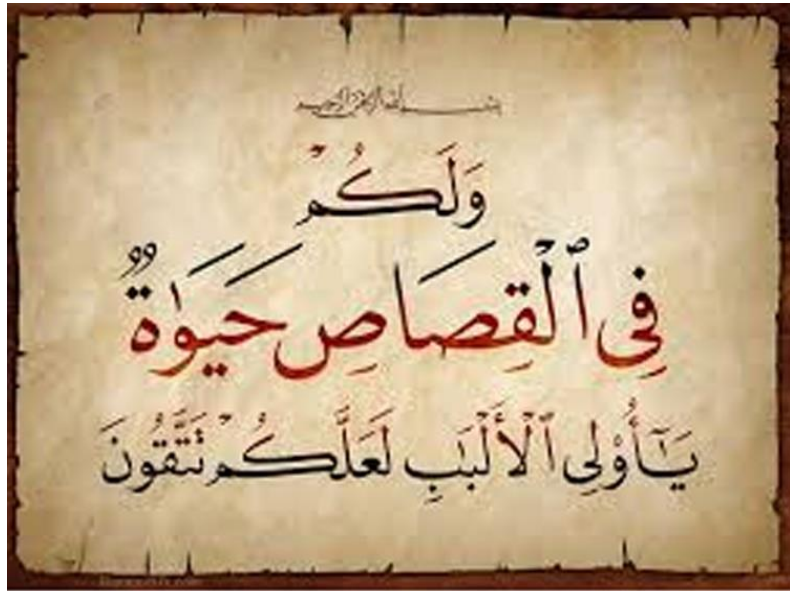 بسم الله الرحمن الرحيم
وَلَكُمْ
فِى ٱلْقِصَاصِ حَيَوٰةٌ
يَٰٓأُو۟لِى ٱلْأَلْبَٰبِ لَعَلَّكُمْ تَتَّقُونَ